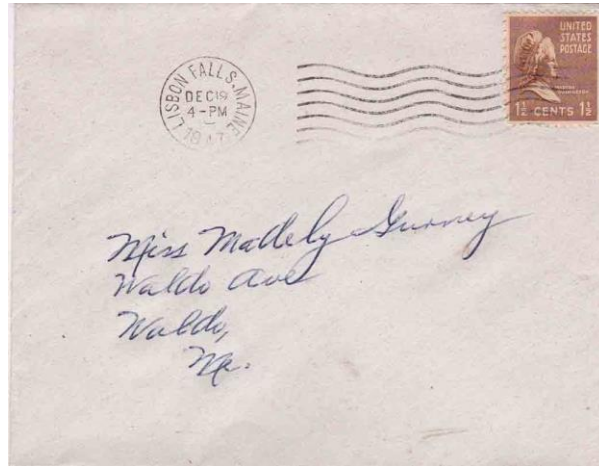 LISBON FALLS, MAINE
DEC 19
4-PM
1947
UNITED
STATES
POSTAGE
1½ CENTS 1½
Miss Madely Gurney
Waldo Ave
Waldo,
Me.